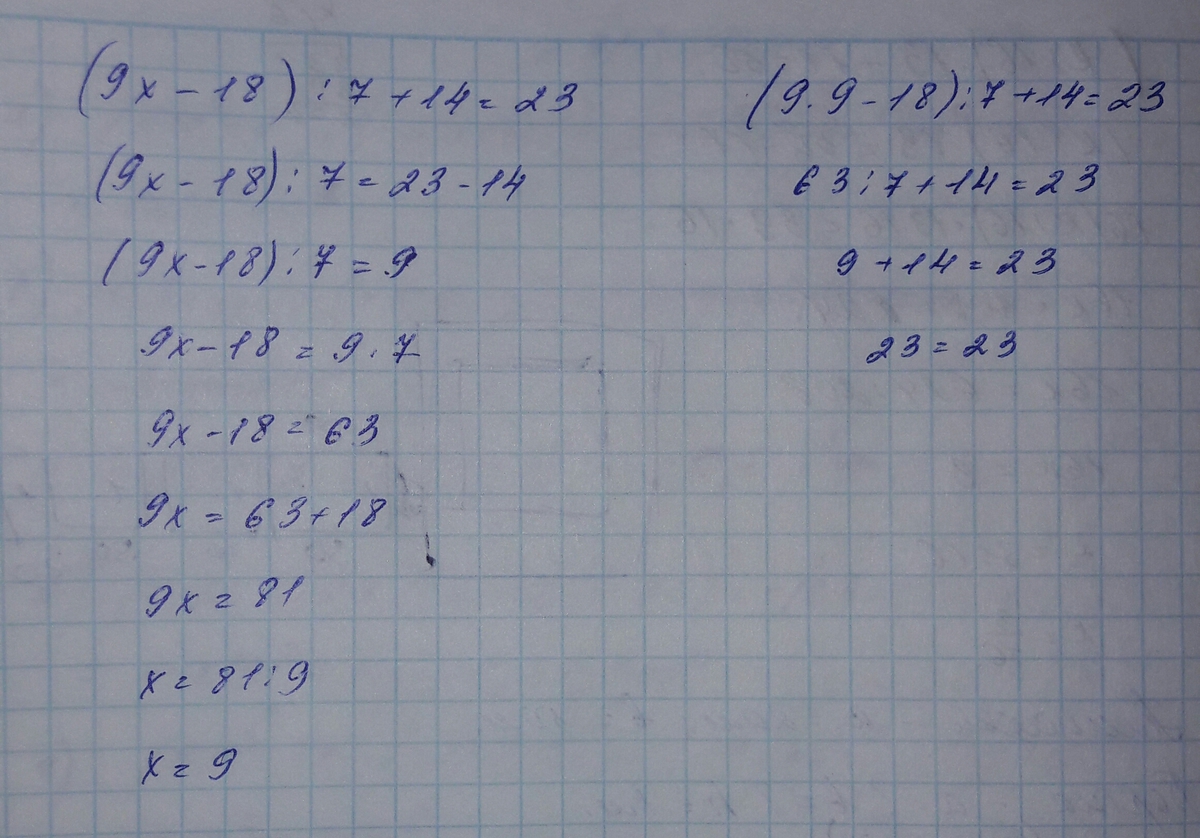 (9x - 18) : 7 + 14 = 23
(9x - 18) : 7 = 23 - 14
(9x - 18) : 7 = 9
9x - 18 = 9 · 7
9x - 18 = 63
9x = 63 + 18
9x = 81
x = 81 : 9
x = 9
(9 · 9 - 18) : 7 + 14 = 23
63 : 7 + 14 = 23
9 + 14 = 23
23 = 23